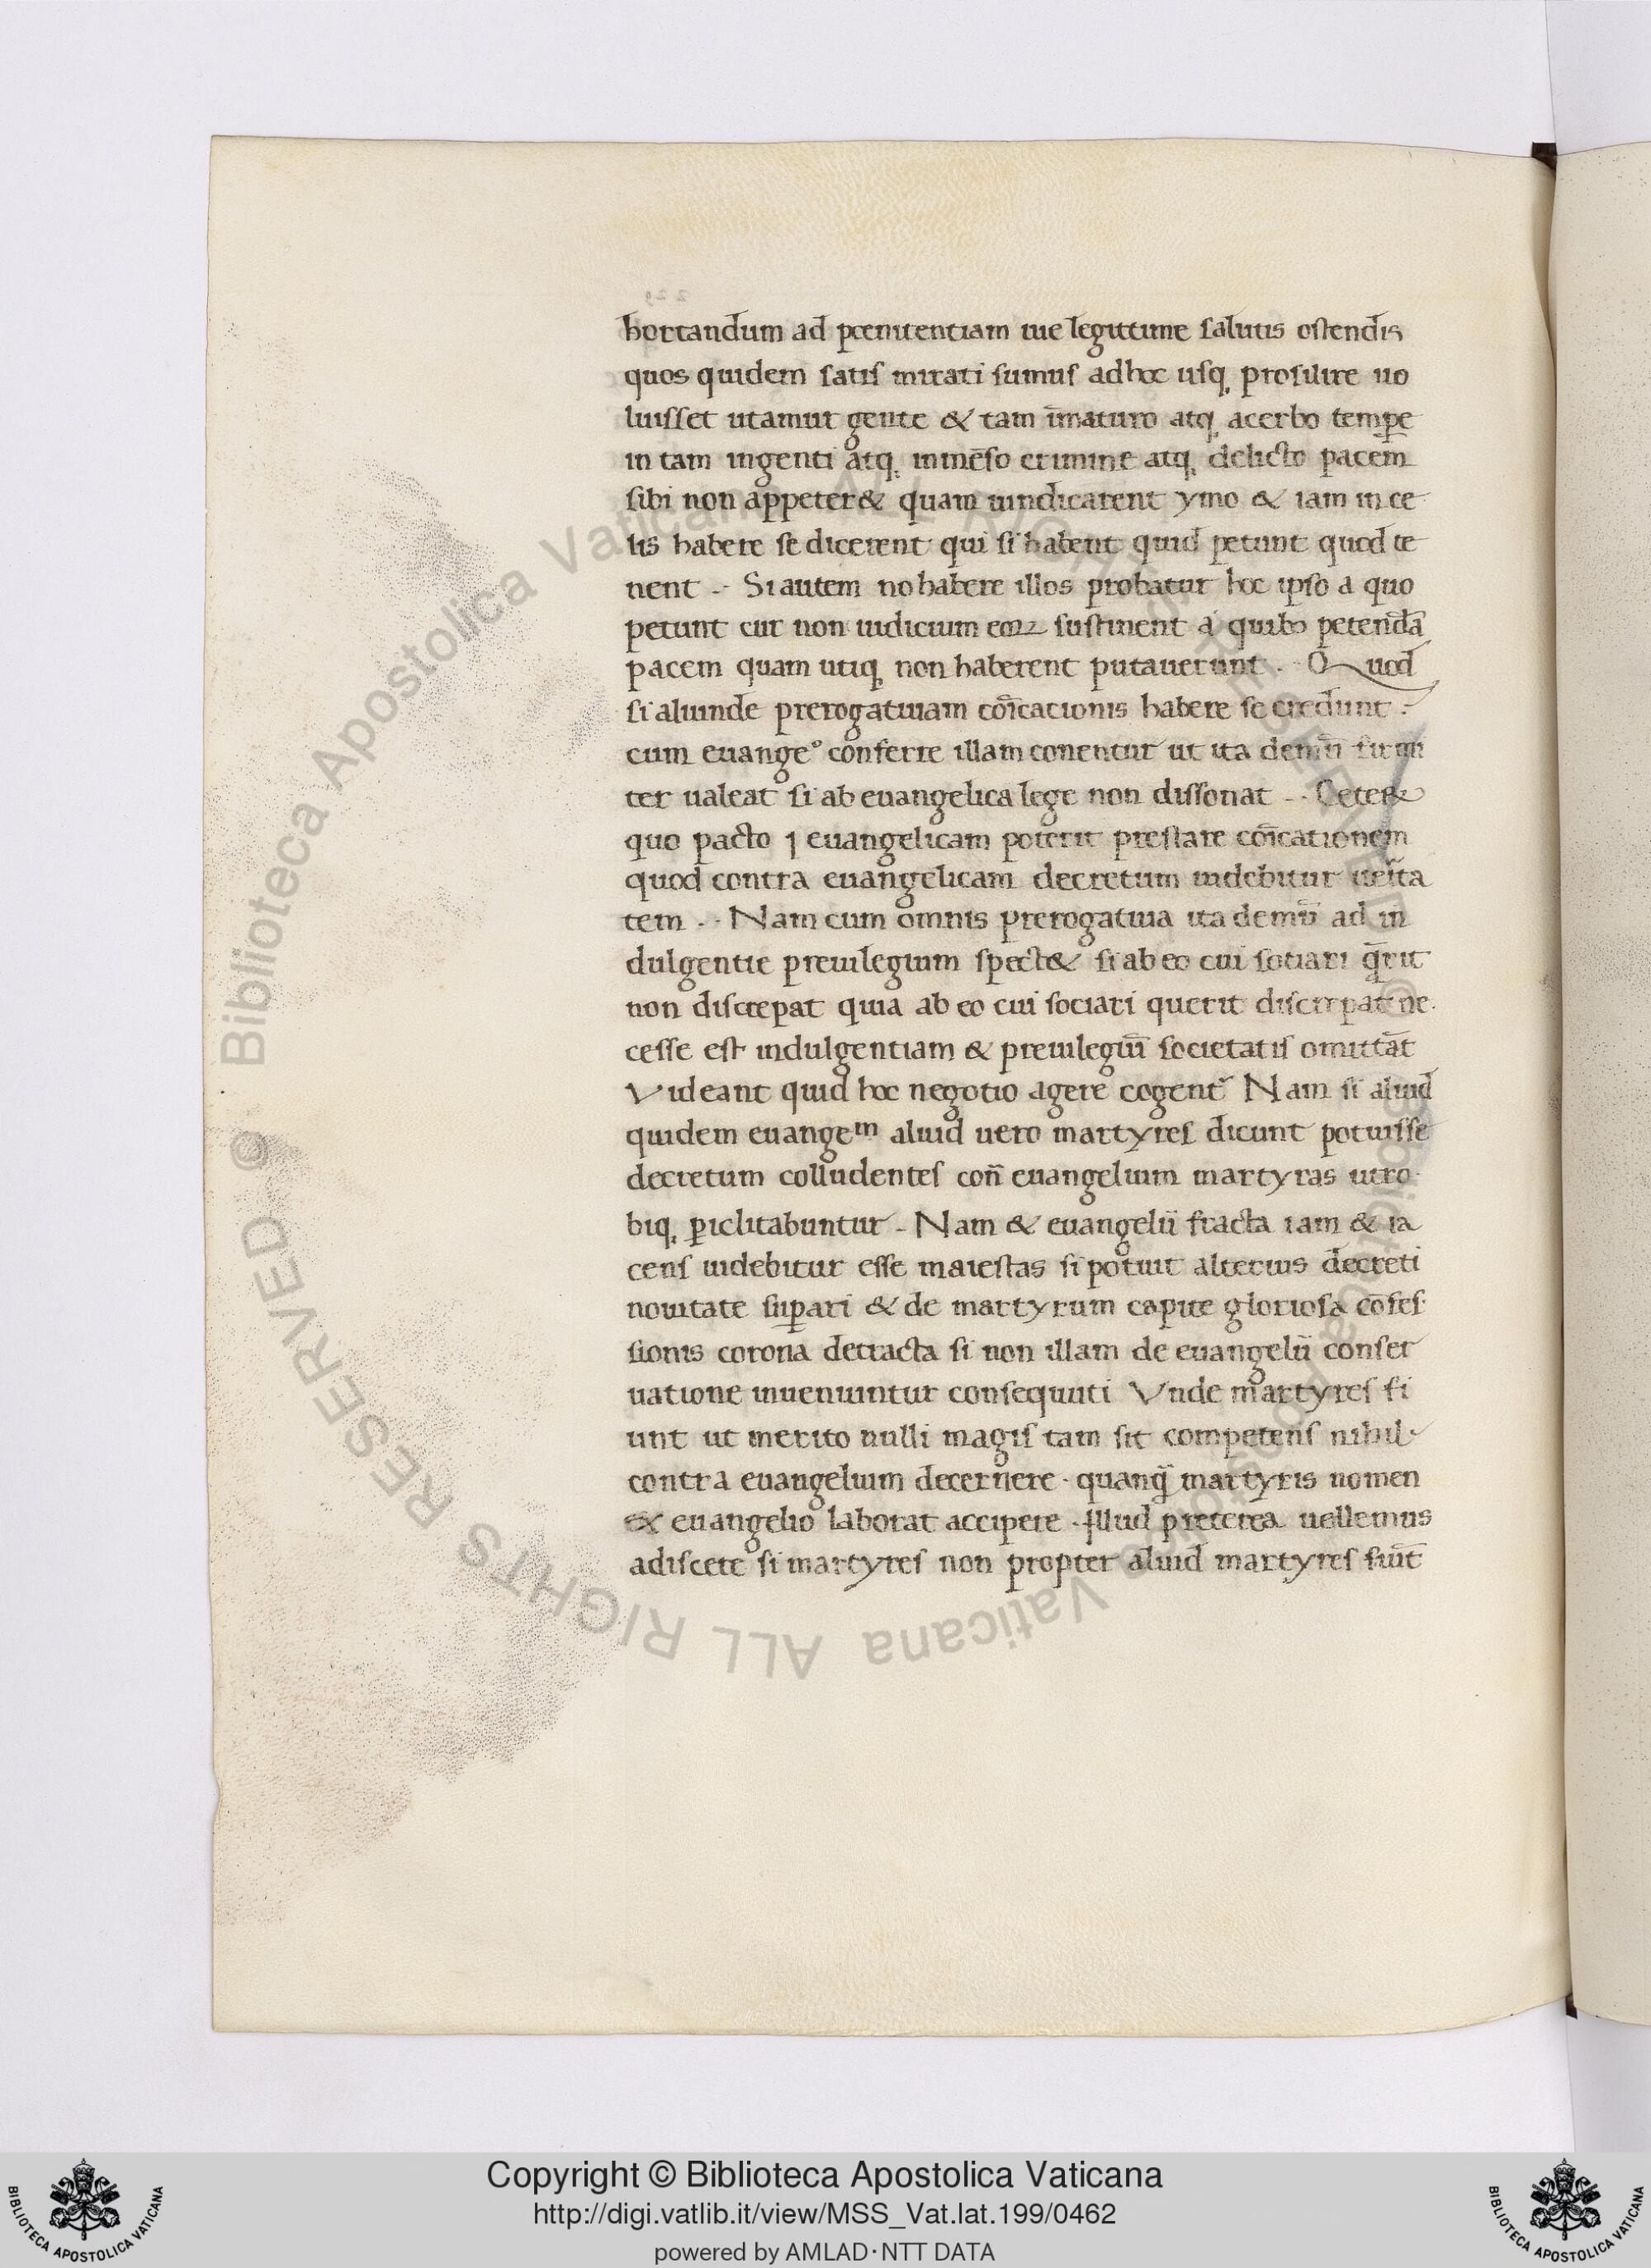 hortandum ad pœnitentiam uie legittime salutis ostendis
quos quidem satis mirati sumus adhoc usq; prosilire uo
luisset utamur gente & tam īmaturo atq; acerbo temꝑe
in tam ingenti atq; inmēso crimine atq; delicto pacem
sibi non appeter& quam uindicarent ymo & iam in ce
lis habere se dicerent qui si habent quid petunt quod te
nent .- Si autem no habere illos probatur hoc ipso a quo
petunt cur non iudicium eoꝝ sustinent a quibo petendā
pacem quam utiq; non haberent putauerunt .- Quod
si aliunde prerogatiuam cōicationis habere se credunt .
cum euangeº conferre illam conentur ut ita demū firmi
ter ualeat si ab euangelica lege non dissonat .- Ceter&
quo pacto ⁊ euangelicam poterit prestare cōicationem
quod contra euangelicam decretum uidebitur uerīta
tem .- Nam cum omnis prerogatiua ita demū ad in
dulgentie preuilegium spect& si ab eo cui sotiari q̄rit
non discrepat quia ab eo cui sociari querit discrepat ne
cesse est indulgentiam & preuilegiū societatis omittāt
Videant quid hoc negotio agere cogent᷑ Nam si aliud
quidem euangeᵐ aliud uero martyres dicunt potuisse
decretum colludentes con̄ euangelium martyras utro
biq; ꝑiclitabuntur - Nam & euangelii fracta iam & ia
cens uidebitur esse maiestas si potuit alterius decreti
nouitate suꝑari & de martyrum capite gloriosa cōfes
sionis corona detracta si non illam de euangelii conser
uatione inueniuntur consequuti Vnde martyres fi
unt ut merito nulli magis tam sit competens nihil
contra euangelium decernere . quanq̄ martyris nomen
ex euangelio laborat accipere . Illud preterea uellemus
adiscere si martyres non propter aliud martyres fiūt
Copyright © Biblioteca Apostolica Vaticana
http://digi.vatlib.it/view/MSS_Vat.lat.199/0462
powered by AMLAD·NTT DATA
BIBLIOTECA APOSTOLICA VATICANA
BIBLIOTECA APOSTOLICA VATICANA
© Biblioteca Apostolica Vaticana ALL RIGHTS RESERVED © Biblioteca Apostolica Vaticana ALL RIGHTS RESERVED